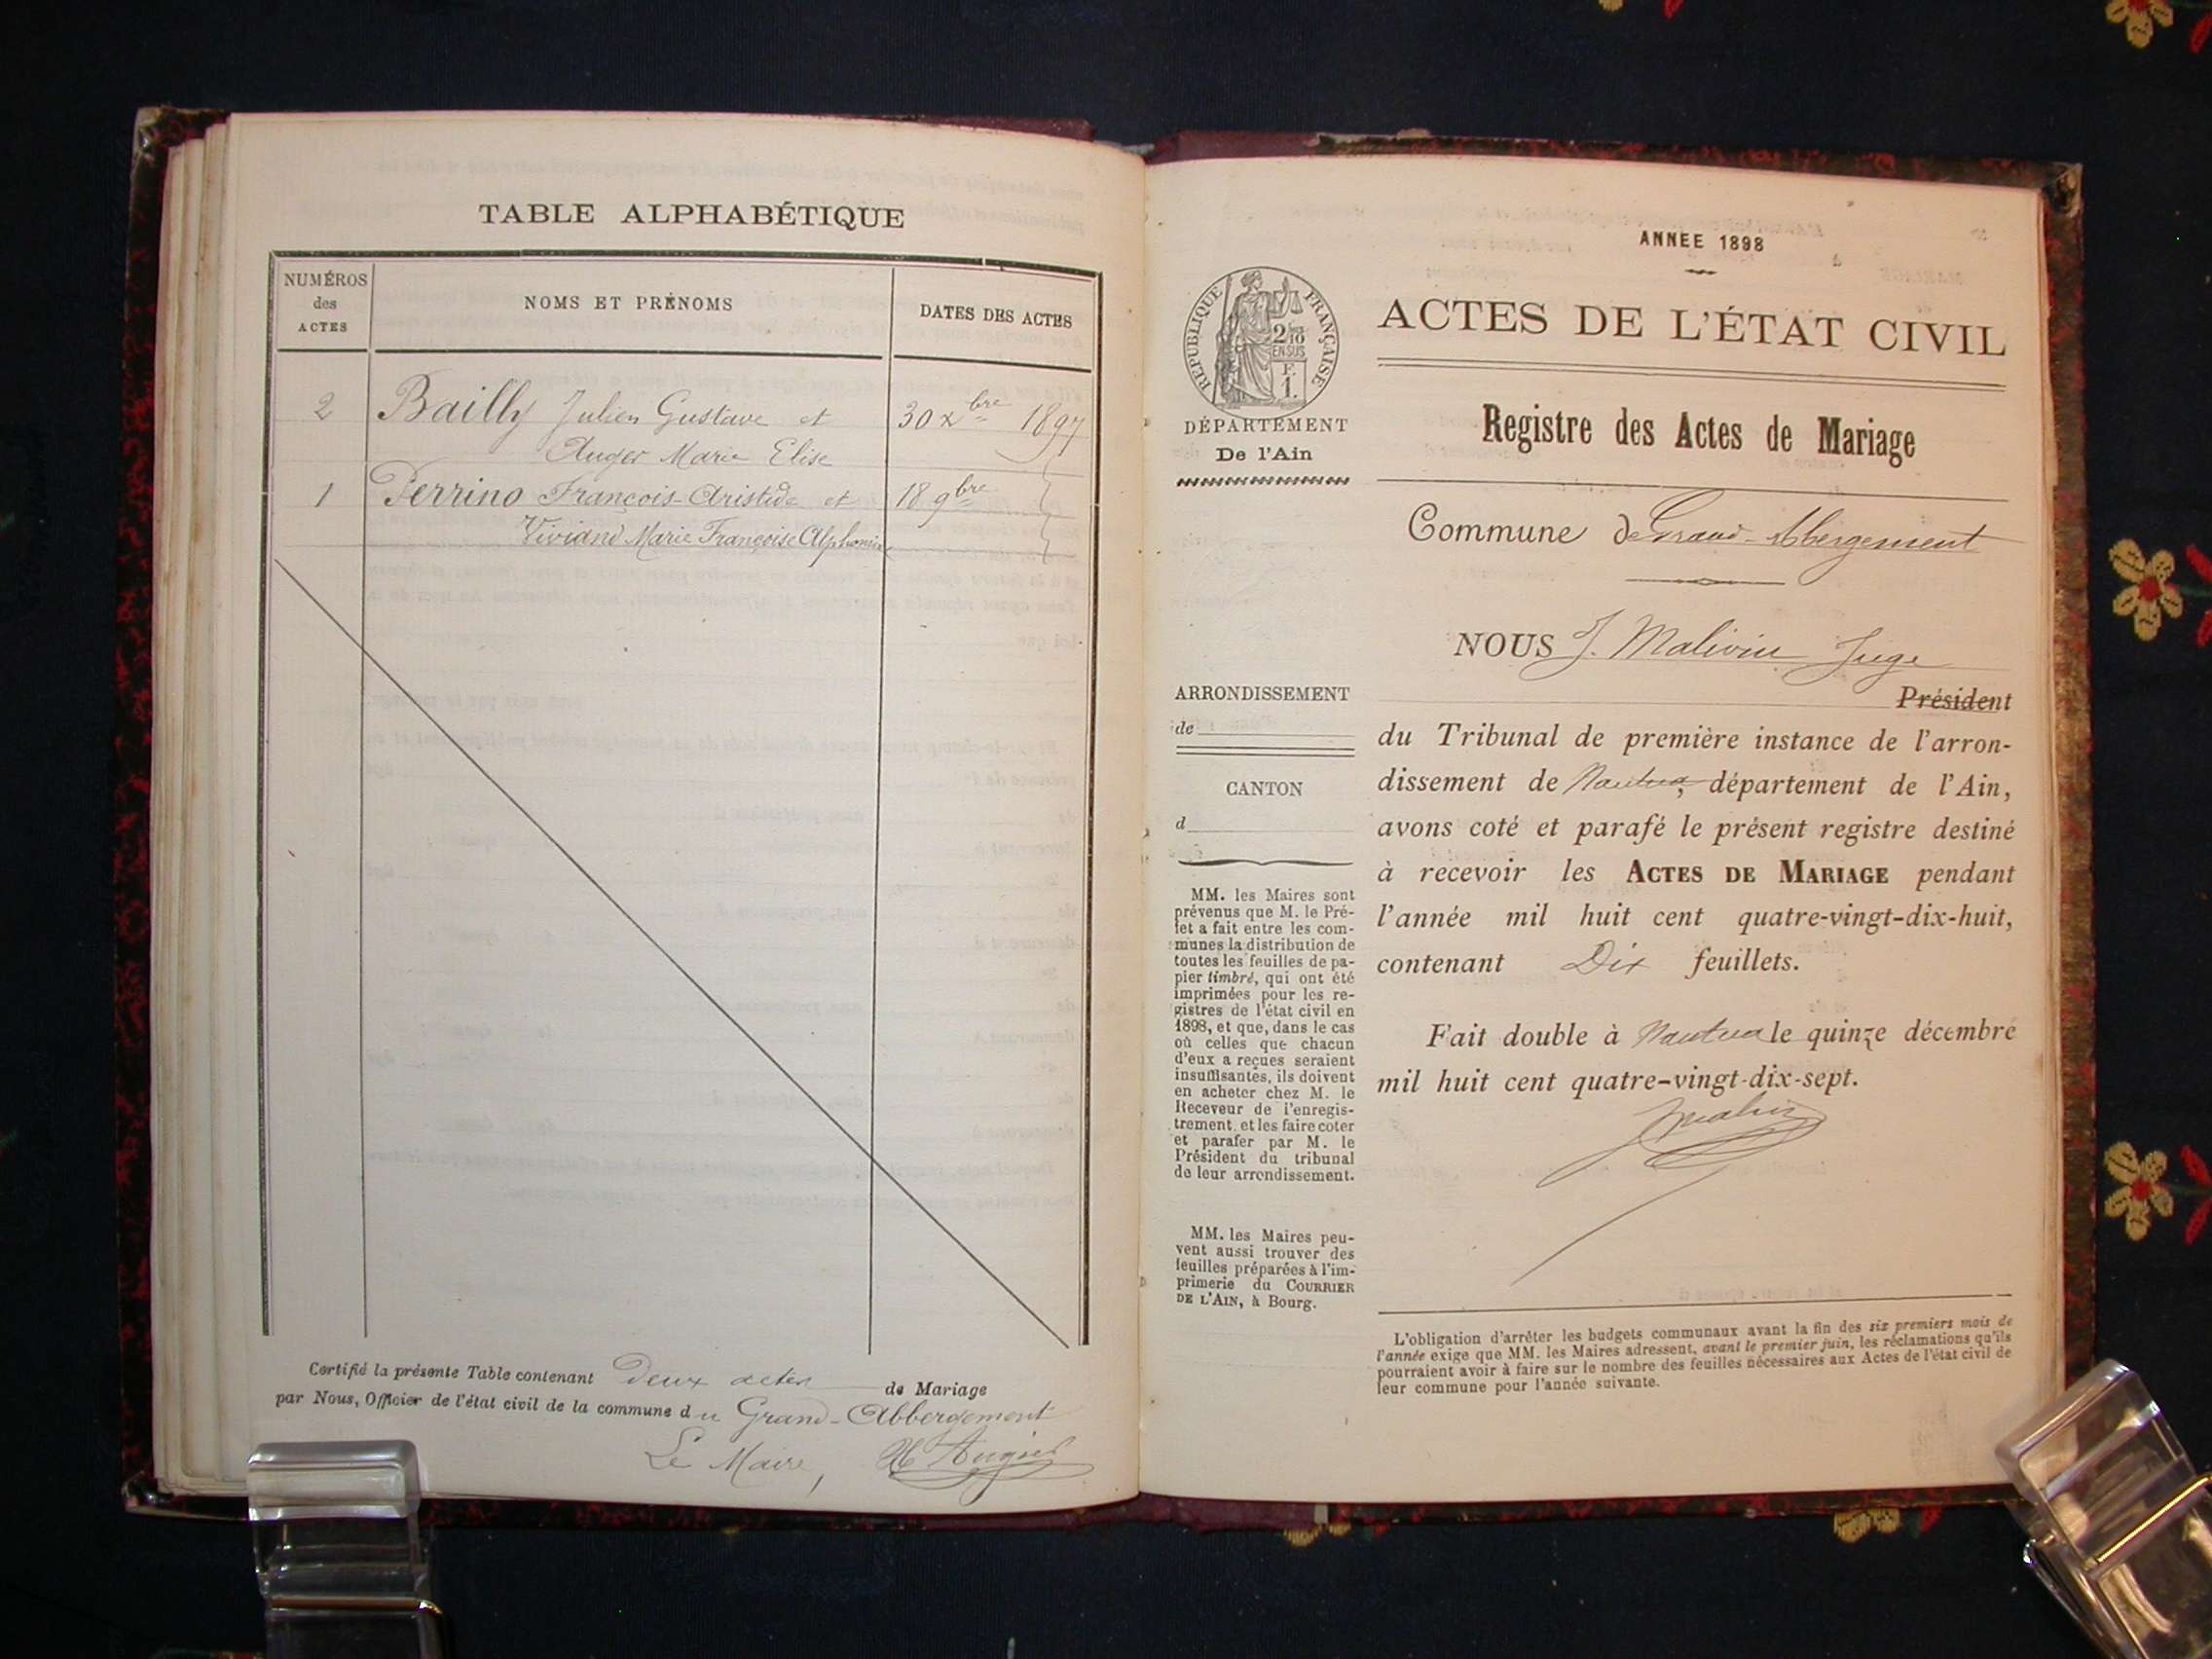 TABLE ALPHABÉTIQUE
NUMÉROS
des
ACTES
NOMS ET PRÉNOMS
DATES DES ACTES
2 Bailly Julien Gustave et 30 xbre 1897
Auger Marie Elise
1 Perrino François-Aristide et 18 9bre
Viviand Marie Françoise Alphonsine
Certifié la présente Table contenant Deux actes de Mariage
par Nous, Officier de l'état civil de la commune du Grand-Abbergement
Le Maire,
ANNEE 1898
REPUBLIQUE FRANÇAISE
2/10
EN SUS
F.
1.
DÉPARTEMENT
De l'Ain
ACTES DE L'ÉTAT CIVIL
Registre des Actes de Mariage
Commune de Grand-Abergement
NOUS J. Malivin Juge
Président
ARRONDISSEMENT
de
CANTON
d
MM. les Maires sont
prévenus que M. le Pré-
fet a fait entre les com-
munes la distribution de
toutes les feuilles de pa-
pier timbré, qui ont été
imprimées pour les re-
gistres de l'état civil en
1898, et que, dans le cas
où celles que chacun
d'eux a reçues seraient
insuffisantes, ils doivent
en acheter chez M. le
Receveur de l'enregis-
trement, et les faire coter
et parafer par M. le
Président du tribunal
de leur arrondissement.
MM. les Maires peu-
vent aussi trouver des
feuilles préparées à l'im-
primerie du COURRIER
DE L'AIN, à Bourg.
du Tribunal de première instance de l'arron-
dissement de Nantua, département de l'Ain,
avons coté et parafé le présent registre destiné
à recevoir les ACTES DE MARIAGE pendant
l'année mil huit cent quatre-vingt-dix-huit,
contenant Dix feuillets.
Fait double à Nantua le quinze décembre
mil huit cent quatre-vingt-dix-sept.
L'obligation d'arrêter les budgets communaux avant la fin des six premiers mois de
l'année exige que MM. les Maires adressent, avant le premier juin, les réclamations qu'ils
pourraient avoir à faire sur le nombre des feuilles nécessaires aux Actes de l'état civil de
leur commune pour l'année suivante.